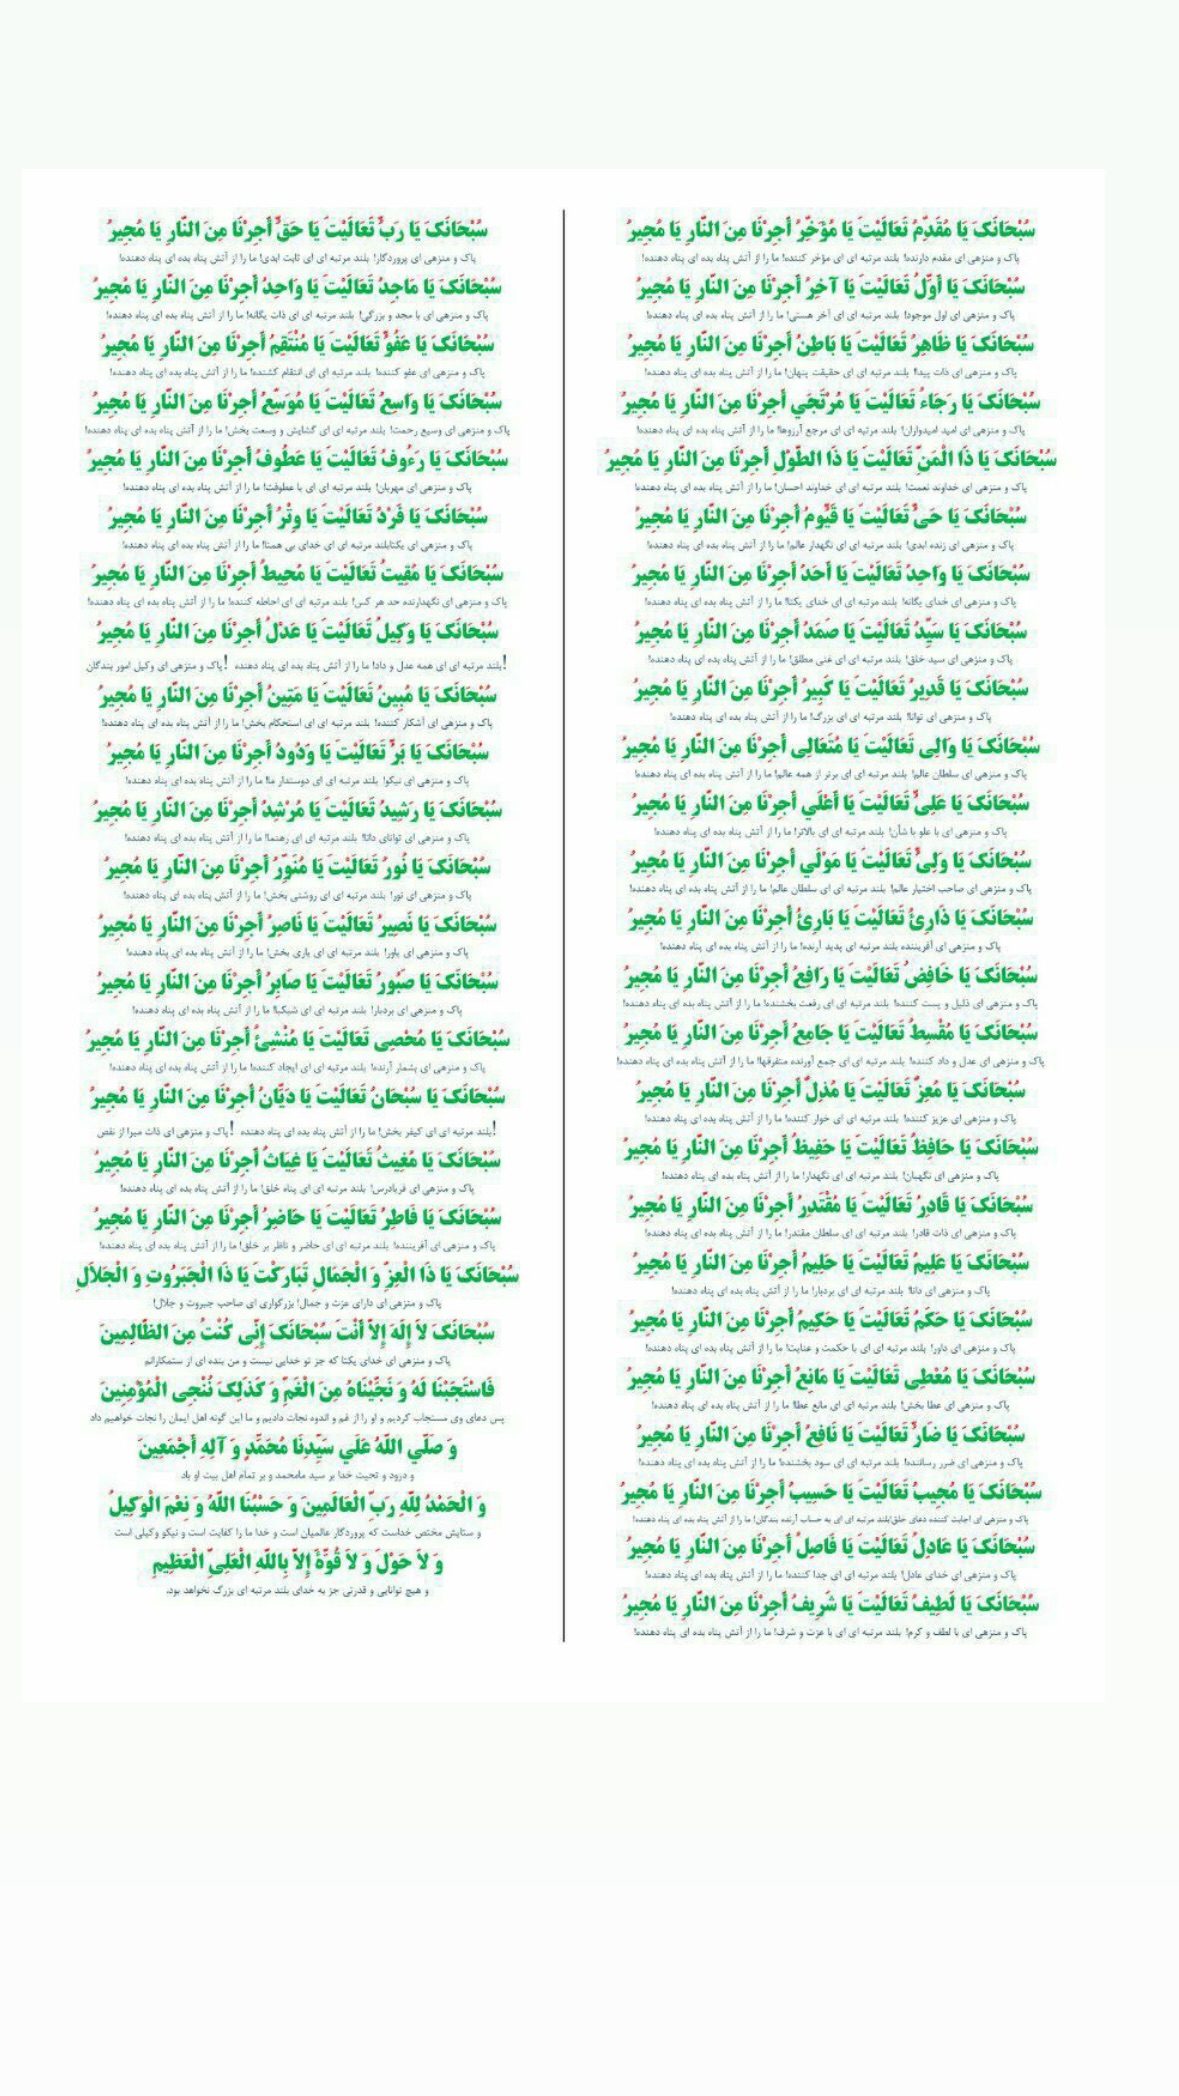 سُبْحَانَکَ یَا مُقَدِّمُ تَعَالَیْتَ یَا مُؤَخِّرُ أَجِرْنَا مِنَ النَّارِ یَا مُجِیرُ
پاک و منزهی ای مقدم دارنده! بلند مرتبه ای ای مؤخر کننده! ما را از آتش پناه بده ای پناه دهنده!
سُبْحَانَکَ یَا أَوَّلُ تَعَالَیْتَ یَا آخِرُ أَجِرْنَا مِنَ النَّارِ یَا مُجِیرُ
پاک و منزهی ای اول موجود! بلند مرتبه ای ای آخر هستی! ما را از آتش پناه بده ای پناه دهنده!
سُبْحَانَکَ یَا ظَاهِرُ تَعَالَیْتَ یَا بَاطِنُ أَجِرْنَا مِنَ النَّارِ یَا مُجِیرُ
پاک و منزهی ای ذات پیدا! بلند مرتبه ای ای حقیقت پنهان! ما را از آتش پناه بده ای پناه دهنده!
سُبْحَانَکَ یَا رَجَاءُ تَعَالَیْتَ یَا مُرْتَجَي أَجِرْنَا مِنَ النَّارِ یَا مُجِیرُ
پاک و منزهی ای امید امیدواران! بلند مرتبه ای ای مرجع آرزوها! ما را از آتش پناه بده ای پناه دهنده!
سُبْحَانَکَ یَا ذَا الْمَنِّ تَعَالَیْتَ یَا ذَا الطَّوْلِ أَجِرْنَا مِنَ النَّارِ یَا مُجِیرُ
پاک و منزهی ای خداوند نعمت! بلند مرتبه ای ای خداوند احسان! ما را از آتش پناه بده ای پناه دهنده!
سُبْحَانَکَ یَا حَیُّ تَعَالَیْتَ یَا قَیُّومُ أَجِرْنَا مِنَ النَّارِ یَا مُجِیرُ
پاک و منزهی ای زنده ابدی! بلند مرتبه ای ای نگهدار عالم! ما را از آتش پناه بده ای پناه دهنده!
سُبْحَانَکَ یَا وَاحِدُ تَعَالَیْتَ یَا أَحَدُ أَجِرْنَا مِنَ النَّارِ یَا مُجِیرُ
پاک و منزهی ای خدای یگانه! بلند مرتبه ای ای خدای یکتا! ما را از آتش پناه بده ای پناه دهنده!
سُبْحَانَکَ یَا سَیِّدُ تَعَالَیْتَ یَا صَمَدُ أَجِرْنَا مِنَ النَّارِ یَا مُجِیرُ
پاک و منزهی ای سید خلق! بلند مرتبه ای ای غنی مطلق! ما را از آتش پناه بده ای پناه دهنده!
سُبْحَانَکَ یَا قَدِیرُ تَعَالَیْتَ یَا کَبِیرُ أَجِرْنَا مِنَ النَّارِ یَا مُجِیرُ
پاک و منزهی ای توانا! بلند مرتبه ای ای بزرگ! ما را از آتش پناه بده ای پناه دهنده!
سُبْحَانَکَ یَا وَالِی تَعَالَیْتَ یَا مُتَعَالِی أَجِرْنَا مِنَ النَّارِ یَا مُجِیرُ
پاک و منزهی ای سلطان عالم! بلند مرتبه ای ای برتر از همه عالم! ما را از آتش پناه بده ای پناه دهنده!
سُبْحَانَکَ یَا عَلِیُّ تَعَالَیْتَ یَا أَعْلَي أَجِرْنَا مِنَ النَّارِ یَا مُجِیرُ
پاک و منزهی ای با علو با شأن! بلند مرتبه ای ای بالاتر! ما را از آتش پناه بده ای پناه دهنده!
سُبْحَانَکَ یَا وَلِیُّ تَعَالَیْتَ یَا مَوْلَي أَجِرْنَا مِنَ النَّارِ یَا مُجِیرُ
پاک و منزهی ای صاحب اختیار عالم! بلند مرتبه ای ای سلطان عالم! ما را از آتش پناه بده ای پناه دهنده!
سُبْحَانَکَ یَا ذَارِئُ تَعَالَیْتَ یَا بَارِئُ أَجِرْنَا مِنَ النَّارِ یَا مُجِیرُ
پاک و منزهی ای آفریننده بلند مرتبه ای پدید آرنده! ما را از آتش پناه بده ای پناه دهنده!
سُبْحَانَکَ یَا خَافِضُ تَعَالَیْتَ یَا رَافِعُ أَجِرْنَا مِنَ النَّارِ یَا مُجِیرُ
پاک و منزهی ای ذلیل و پست کننده! بلند مرتبه ای ای رفعت بخشنده! ما را از آتش پناه بده ای پناه دهنده!
سُبْحَانَکَ یَا مُقْسِطُ تَعَالَیْتَ یَا جَامِعُ أَجِرْنَا مِنَ النَّارِ یَا مُجِیرُ
پاک و منزهی ای عدل و داد کننده! بلند مرتبه ای ای جمع آورنده متفرقها! ما را از آتش پناه بده ای پناه دهنده!
سُبْحَانَکَ یَا مُعِزُّ تَعَالَیْتَ یَا مُذِلُّ أَجِرْنَا مِنَ النَّارِ یَا مُجِیرُ
پاک و منزهی ای عزیز کننده! بلند مرتبه ای ای خوار کننده! ما را از آتش پناه بده ای پناه دهنده!
سُبْحَانَکَ یَا حَافِظُ تَعَالَیْتَ یَا حَفِیظُ أَجِرْنَا مِنَ النَّارِ یَا مُجِیرُ
پاک و منزهی ای نگهبان! بلند مرتبه ای ای نگهدار! ما را از آتش پناه بده ای پناه دهنده!
سُبْحَانَکَ یَا قَادِرُ تَعَالَیْتَ یَا مُقْتَدِرُ أَجِرْنَا مِنَ النَّارِ یَا مُجِیرُ
پاک و منزهی ای ذات قادر! بلند مرتبه ای ای سلطان مقتدر! ما را از آتش پناه بده ای پناه دهنده!
سُبْحَانَکَ یَا عَلِیمُ تَعَالَیْتَ یَا حَلِیمُ أَجِرْنَا مِنَ النَّارِ یَا مُجِیرُ
پاک و منزهی ای دانا! بلند مرتبه ای ای بردبار! ما را از آتش پناه بده ای پناه دهنده!
سُبْحَانَکَ یَا حَکَمُ تَعَالَیْتَ یَا حَکِیمُ أَجِرْنَا مِنَ النَّارِ یَا مُجِیرُ
پاک و منزهی ای داور! بلند مرتبه ای ای با حکمت و عنایت! ما را از آتش پناه بده ای پناه دهنده!
سُبْحَانَکَ یَا مُعْطِی تَعَالَیْتَ یَا مَانِعُ أَجِرْنَا مِنَ النَّارِ یَا مُجِیرُ
پاک و منزهی ای عطا بخش! بلند مرتبه ای ای مانع عطا! ما را از آتش پناه بده ای پناه دهنده!
سُبْحَانَکَ یَا ضَارُّ تَعَالَیْتَ یَا نَافِعُ أَجِرْنَا مِنَ النَّارِ یَا مُجِیرُ
پاک و منزهی ای ضرر رساننده! بلند مرتبه ای ای سود بخشنده! ما را از آتش پناه بده ای پناه دهنده!
سُبْحَانَکَ یَا مُجِیبُ تَعَالَیْتَ یَا حَسِیبُ أَجِرْنَا مِنَ النَّارِ یَا مُجِیرُ
پاک و منزهی ای اجابت کننده دعای خلق!بلند مرتبه ای ای به حساب آرنده بندگان! ما را از آتش پناه بده ای پناه دهنده!
سُبْحَانَکَ یَا عَادِلُ تَعَالَیْتَ یَا فَاصِلُ أَجِرْنَا مِنَ النَّارِ یَا مُجِیرُ
پاک و منزهی ای خدای عادل! بلند مرتبه ای ای جدا کننده! ما را از آتش پناه بده ای پناه دهنده!
سُبْحَانَکَ یَا لَطِیفُ تَعَالَیْتَ یَا شَرِیفُ أَجِرْنَا مِنَ النَّارِ یَا مُجِیرُ
پاک و منزهی ای با لطف و کرم! بلند مرتبه ای ای با عزت و شرف! ما را از آتش پناه بده ای پناه دهنده!
سُبْحَانَکَ یَا رَبُّ تَعَالَیْتَ یَا حَقُّ أَجِرْنَا مِنَ النَّارِ یَا مُجِیرُ
پاک و منزهی ای پروردگار! بلند مرتبه ای ای ثابت ابدی! ما را از آتش پناه بده ای پناه دهنده!
سُبْحَانَکَ یَا مَاجِدُ تَعَالَیْتَ یَا وَاحِدُ أَجِرْنَا مِنَ النَّارِ یَا مُجِیرُ
پاک و منزهی ای با مجد و بزرگی! بلند مرتبه ای ای ذات یگانه! ما را از آتش پناه بده ای پناه دهنده!
سُبْحَانَکَ یَا عَفُوُّ تَعَالَیْتَ یَا مُنْتَقِمُ أَجِرْنَا مِنَ النَّارِ یَا مُجِیرُ
پاک و منزهی ای عفو کننده! بلند مرتبه ای ای انتقام کشنده! ما را از آتش پناه بده ای پناه دهنده!
سُبْحَانَکَ یَا وَاسِعُ تَعَالَیْتَ یَا مُوَسِّعُ أَجِرْنَا مِنَ النَّارِ یَا مُجِیرُ
پاک و منزهی ای وسیع رحمت! بلند مرتبه ای ای گشایش و وسعت بخش! ما را از آتش پناه بده ای پناه دهنده!
سُبْحَانَکَ یَا رَءُوفُ تَعَالَیْتَ یَا عَطُوفُ أَجِرْنَا مِنَ النَّارِ یَا مُجِیرُ
پاک و منزهی ای مهربان! بلند مرتبه ای ای با عطوفت! ما را از آتش پناه بده ای پناه دهنده!
سُبْحَانَکَ یَا فَرْدُ تَعَالَیْتَ یَا وِتْرُ أَجِرْنَا مِنَ النَّارِ یَا مُجِیرُ
پاک و منزهی ای یکتابلند مرتبه ای ای خدای بی همتا! ما را از آتش پناه بده ای پناه دهنده!
سُبْحَانَکَ یَا مُقِیتُ تَعَالَیْتَ یَا مُحِیطُ أَجِرْنَا مِنَ النَّارِ یَا مُجِیرُ
پاک و منزهی ای نگهدارنده حد هر کس! بلند مرتبه ای ای احاطه کننده! ما را از آتش پناه بده ای پناه دهنده!
سُبْحَانَکَ یَا وَکِیلُ تَعَالَیْتَ یَا عَدْلُ أَجِرْنَا مِنَ النَّارِ یَا مُجِیرُ
!بلند مرتبه ای ای همه عدل و داد! ما را از آتش پناه بده ای پناه دهنده !پاک و منزهی ای وکیل امور بندگان
سُبْحَانَکَ یَا مُبِینُ تَعَالَیْتَ یَا مَتِینُ أَجِرْنَا مِنَ النَّارِ یَا مُجِیرُ
پاک و منزهی ای آشکار کننده! بلند مرتبه ای ای استحکام بخش! ما را از آتش پناه بده ای پناه دهنده!
سُبْحَانَکَ یَا بَرُّ تَعَالَیْتَ یَا وَدُودُ أَجِرْنَا مِنَ النَّارِ یَا مُجِیرُ
پاک و منزهی ای نیکو! بلند مرتبه ای ای دوستدار ما! ما را از آتش پناه بده ای پناه دهنده!
سُبْحَانَکَ یَا رَشِیدُ تَعَالَیْتَ یَا مُرْشِدُ أَجِرْنَا مِنَ النَّارِ یَا مُجِیرُ
پاک و منزهی ای توانای دانا! بلند مرتبه ای ای رهنما! ما را از آتش پناه بده ای پناه دهنده!
سُبْحَانَکَ یَا نُورُ تَعَالَیْتَ یَا مُنَوِّرُ أَجِرْنَا مِنَ النَّارِ یَا مُجِیرُ
پاک و منزهی ای نور! بلند مرتبه ای ای روشنی بخش! ما را از آتش پناه بده ای پناه دهنده!
سُبْحَانَکَ یَا نَصِیرُ تَعَالَیْتَ یَا نَاصِرُ أَجِرْنَا مِنَ النَّارِ یَا مُجِیرُ
پاک و منزهی ای یاور! بلند مرتبه ای ای یاری بخش! ما را از آتش پناه بده ای پناه دهنده!
سُبْحَانَکَ یَا صَبُورُ تَعَالَیْتَ یَا صَابِرُ أَجِرْنَا مِنَ النَّارِ یَا مُجِیرُ
پاک و منزهی ای بردبار! بلند مرتبه ای ای شیکبا! ما را از آتش پناه بده ای پناه دهنده!
سُبْحَانَکَ یَا مُحْصِی تَعَالَیْتَ یَا مُنْشِئُ أَجِرْنَا مِنَ النَّارِ یَا مُجِیرُ
پاک و منزهی ای بشمار آرنده! بلند مرتبه ای ای ایجاد کننده! ما را از آتش پناه بده ای پناه دهنده!
سُبْحَانَکَ یَا سُبْحَانُ تَعَالَیْتَ یَا دَیَّانُ أَجِرْنَا مِنَ النَّارِ یَا مُجِیرُ
!بلند مرتبه ای ای کیفر بخش! ما را از آتش پناه بده ای پناه دهنده !پاک و منزهی ای ذات مبرا از نقص
سُبْحَانَکَ یَا مُغِیثُ تَعَالَیْتَ یَا غِیَاثُ أَجِرْنَا مِنَ النَّارِ یَا مُجِیرُ
پاک و منزهی ای فریادرس! بلند مرتبه ای ای پناه خلق! ما را از آتش پناه بده ای پناه دهنده!
سُبْحَانَکَ یَا فَاطِرُ تَعَالَیْتَ یَا حَاضِرُ أَجِرْنَا مِنَ النَّارِ یَا مُجِیرُ
پاک و منزهی ای آفریننده! بلند مرتبه ای ای حاضر و ناظر بر خلق! ما را از آتش پناه بده ای پناه دهنده!
سُبْحَانَکَ یَا ذَا الْعِزِّ وَ الْجَمَالِ تَبَارَکْتَ یَا ذَا الْجَبَرُوتِ وَ الْجَلاَلِ
پاک و منزهی ای دارای عزت و جمال! بزرگواری ای صاحب جبروت و جلال!
سُبْحَانَکَ لاَ إِلَهَ إِلاَّ أَنْتَ سُبْحَانَکَ إِنِّی کُنْتُ مِنَ الظَّالِمِینَ
پاک و منزهی ای خدای یکتا که جز تو خدایی نیست و من بنده ای از ستمکارانم
فَاسْتَجَبْنَا لَهُ وَ نَجَّیْنَاهُ مِنَ الْغَمِّ وَ کَذَلِکَ نُنْجِی الْمُؤْمِنِینَ
پس دعای وی مستجاب کردیم و او را از غم و اندوه نجات دادیم و ما این گونه اهل ایمان را نجات خواهیم داد
وَ صَلَّي اللَّهُ عَلَي سَیِّدِنَا مُحَمَّدٍ وَ آلِهِ أَجْمَعِینَ
و درود و تحیت خدا بر سید مامحمد و بر تمام اهل بیت او باد
وَ الْحَمْدُ لِلَّهِ رَبِّ الْعَالَمِینَ وَ حَسْبُنَا اللَّهُ وَ نِعْمَ الْوَکِیلُ
و ستایش مختص خداست که پروردگار عالمیان است و خدا ما را کفایت است و نیکو وکیلی است
وَ لاَ حَوْلَ وَ لاَ قُوَّةَ إِلاَّ بِاللَّهِ الْعَلِیِّ الْعَظِیمِ
و هیچ توانایی و قدرتی جز به خدای بلند مرتبه ای بزرگ نخواهد بود.